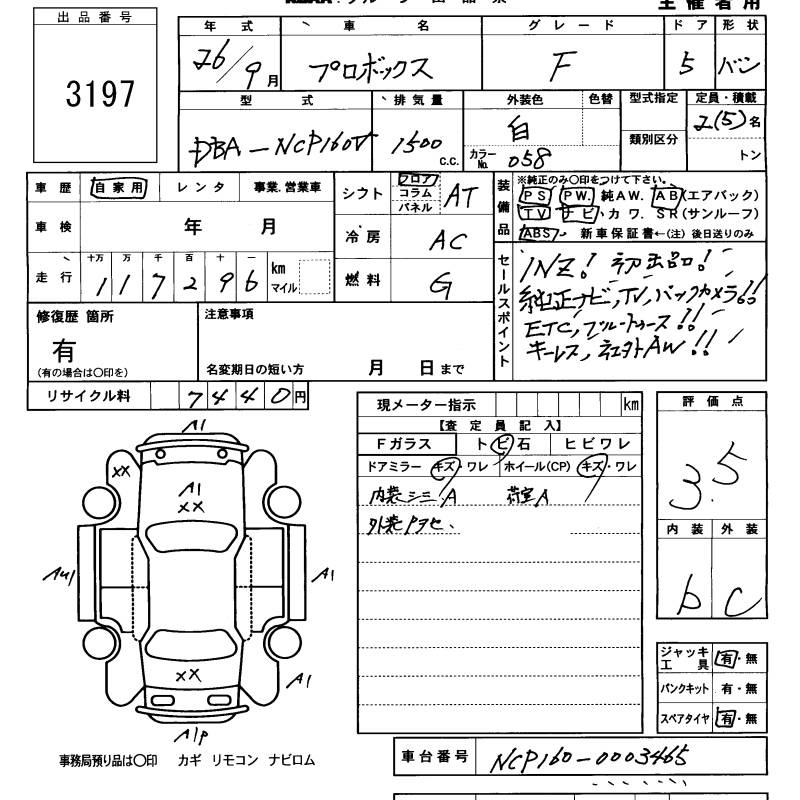 主催者用
出品番号
3197
年式 車名 グレード ドア 形状
26/9月 プロボックス F 5 バン
型式 排気量 外装色 色替 型式指定 定員・積載
DBA-NCP160V 1500 c.c. 白 類別区分 2(5)名
カラーNo. 058 トン
車歴 自家用 レンタ 事業.営業車
車検 年 月
走行 十万 万 千 百 十 一
1 1 7 2 9 6 km マイル
シフト フロア コラム パネル AT
冷房 AC
燃料 G
装備品
※純正のみ〇印をつけて下さい。
PS PW. 純AW. AB(エアバック)
TV ナビ・カワ. SR(サンルーフ)
ABS 新車保証書←(注) 後日送りのみ
セールスポイント
1NZ! 初出品!
純正ナビ,TV,バックカメラ!!
ETC,ブルートゥース!!
キーレス,社外AW!!
修復歴 箇所
有
(有の場合は〇印を)
注意事項
名変期日の短い方 月 日まで
リサイクル料 7440円
現メーター指示 km
【査定員記入】
Fガラス トビ石 ヒビワレ
ドアミラー キズ・ワレ ホイール(CP) キズ・ワレ
内装シミA 荷室A
外装アセ、
評価点
3.5
内装 外装
b C
A1
XX
A1
XX
AU1
A1
XX
A1
A1P
ジャッキ工具 有・無
パンクキット 有・無
スペアタイヤ 有・無
事務局預り品は〇印 カギ リモコン ナビロム
車台番号 NCP160-0003465